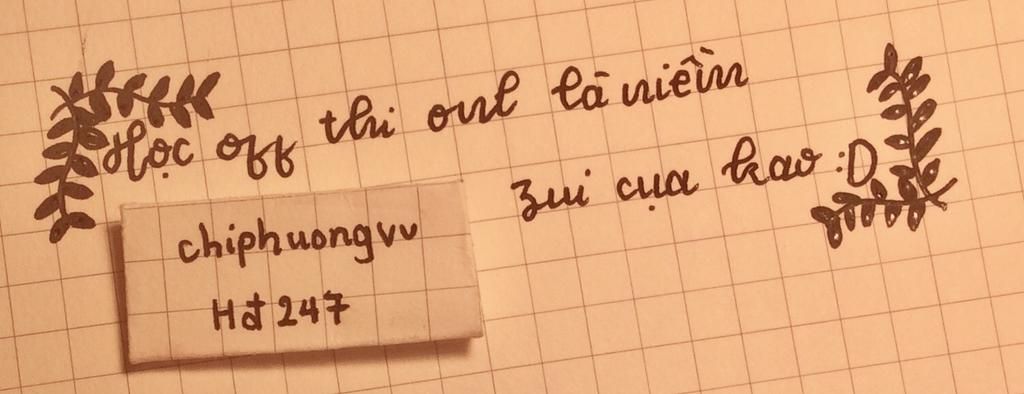 Học off thi onl là niềm
zui cụa kao :D
chiphuongvv
Hđ 247